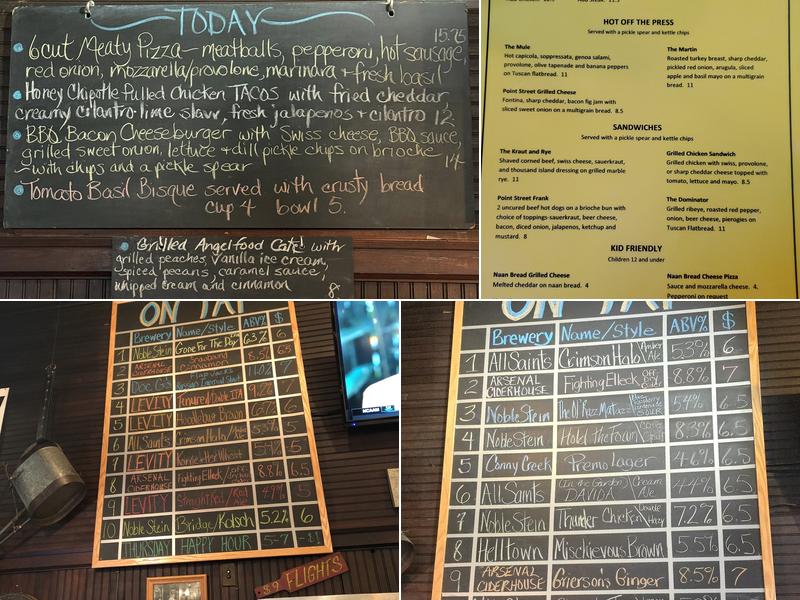 TODAY
15.75
6cut Meaty Pizza - meatballs, pepperoni, hot sausage,
red onion, mozzarella/provolone, marinara + fresh basil
Honey Chipotle Pulled Chicken TACOS with fried cheddar,
creamy cilantro-lime slaw, fresh jalapeños + cilantro 12.
BBQ Bacon Cheeseburger with Swiss cheese, BBQ sauce,
grilled sweet onion, lettuce + dill pickle chips on brioche
~with chips and a pickle spear 14
Tomato Basil Bisque served with crusty bread
cup 4 bowl 5.
Grilled Angelfood Cake with
grilled peaches, vanilla ice cream,
spiced pecans, caramel sauce,
whipped cream and cinnamon 8
HOT OFF THE PRESS
Served with a pickle spear and kettle chips
The Mule
Hot capicola, soppressata, genoa salami,
provolone, olive tapenade and banana peppers
on Tuscan flatbread. 11
The Martin
Roasted turkey breast, sharp cheddar,
pickled red onion, arugula, sliced
apple and basil mayo on a multigrain
bread. 11
Point Street Grilled Cheese
Fontina, sharp cheddar, bacon fig jam with
sliced sweet onion on a multigrain bread. 8.5
SANDWICHES
Served with a pickle spear and kettle chips
The Kraut and Rye
Shaved corned beef, swiss cheese, sauerkraut,
and thousand island dressing on grilled marble
rye. 11
Grilled Chicken Sandwich
Grilled chicken with swiss, provolone,
or sharp cheddar cheese topped with
tomato, lettuce and mayo. 8.5
Point Street Frank
2 uncured beef hot dogs on a brioche bun with
choice of toppings-sauerkraut, beer cheese,
bacon, diced onion, jalapenos, ketchup and
mustard. 8
The Dominator
Grilled ribeye, roasted red pepper,
onion, beer cheese, pierogies on
Tuscan Flatbread. 11
KID FRIENDLY
Children 12 and under
Naan Bread Grilled Cheese
Melted cheddar on naan bread. 4
Naan Bread Cheese Pizza
Sauce and mozzarella cheese. 4.
Pepperoni on request
ON TAP
Brewery Name/Style ABV% $
1 Noble Stein Gone For The Day 6.3% 6
2 ARSENAL CIDERHOUSE Snowbound Cinnamon 8.5% 6.5
3 Doc G's Russian Imperial Stout 7
4 LEVITY Tenured Dube IPA 7
5 LEVITY Brown 6
6 All Saints Crimson Halo 5.3% 6
7 LEVITY 5
8 ARSENAL CIDERHOUSE Fighting Elleck 8.8% 6.5
9 LEVITY Straight Red/Red Ale 4.9% 5
10 Noble Stein Bridge/Kolsch 5.2% 6
THURSDAY HAPPY HOUR 5-7 -$1
$9 FLIGHTS
NCAAM
ON TAP
Brewery Name/Style ABV% $
1 All Saints Crimson Halo Amber Ale 5.3% 6
2 ARSENAL CIDERHOUSE Fighting Elleck OFF DRY CIDER 8.8% 7
3 Noble Stein The Ol' Razz Mataz 5.4% 6.5
4 Noble Stein Hold the Fawn 8.3% 6.5
5 Conny Creek Premo Lager 4.6% 6.5
6 All Saints (In the Garden) DAVIDA Cream Ale 4.4% 6.5
7 Noble Stein Thunder Chicken Double Hazy 7.2% 6.5
8 Helltown Mischievous Brown 5.5% 6.5
9 ARSENAL CIDERHOUSE Grierson's Ginger 8.5% 7